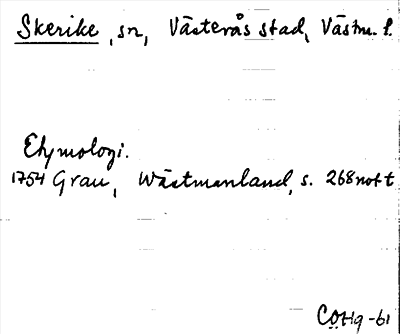 Skerike, sn, Västerås stad, Västm. l.
Etymologi.
1754 Grau, Wästmanland, s. 268 not t
COHg -61